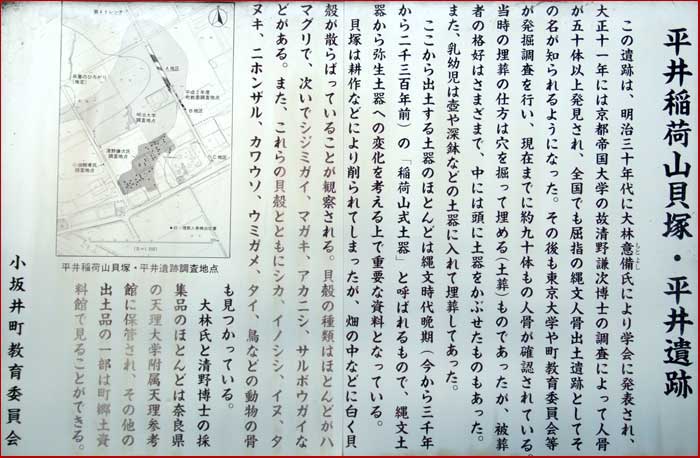 平井稲荷山貝塚・平井遺跡
この遺跡は、明治三十年代に大林意備氏により学会に発表され、
もとよし
大正十一年には京都帝国大学の故清野謙次博士の調査によって人骨
が五十体以上発見され、全国でも屈指の縄文人骨出土遺跡としてそ
の名が知られるようになった。その後も東京大学や町教育委員会等
が発掘調査を行い、現在までに約九十体もの人骨が確認されている。
当時の埋葬の仕方は穴を掘って埋める(土葬)ものであったが、被葬
者の格好はさまざまで、中には頭に土器をかぶせたものもあった。
また、乳幼児は壺や深鉢などの土器に入れて埋葬してあった。
ここから出土する土器のほとんどは縄文時代晩期(今から三千年
から二千三百年前)の「稲荷山式土器」と呼ばれるもので、縄文土
器から弥生土器への変化を考える上で重要な資料となっている。
貝塚は耕作などにより削られてしまったが、畑の中などに白く貝
殻が散らばっていることが観察される。貝殻の種類はほとんどがハ
マグリで、次いでシジミガイ、マガキ、アカニシ、サルボウガイな
どがある。また、これらの貝殻とともにシカ、イノシシ、イヌ、タ
ヌキ、ニホンザル、カワウソ、ウミガメ、タイ、鳥などの動物の骨
も見つかっている。
大林氏と清野博士の採
集品のほとんどは奈良県
の天理大学附属天理参考
館に保管され、その他の
出土品の一部は町郷土資
料館で見ることができる。
小坂井町教育委員会
平井稲荷山貝塚・平井遺跡調査地点
第4トレンチ
A地区
平成2年度
町教委調査地点
B地区
貝層のひろがり
(推定)
明治大学
調査地点
清野謙次氏
調査地点
C地区
調査地点